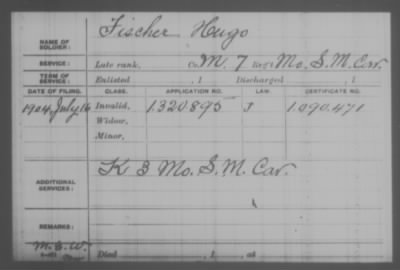 NAME OF SOLDIER: Fischer Hugo
SERVICE: Late rank, Co. M. 7 Reg't Mo. S. M. Cav.
TERM OF SERVICE: Enlisted , 1 Discharged , 1
DATE OF FILING. CLASS. APPLICATION NO. LAW. CERTIFICATE NO.
1904, July 16 Invalid, 1320895 J 1.090.471
Widow,
Minor,
ADDITIONAL SERVICES: K 3 Mo. S. M. Cav.
REMARKS:
M.B.W.
Died , 1 , at